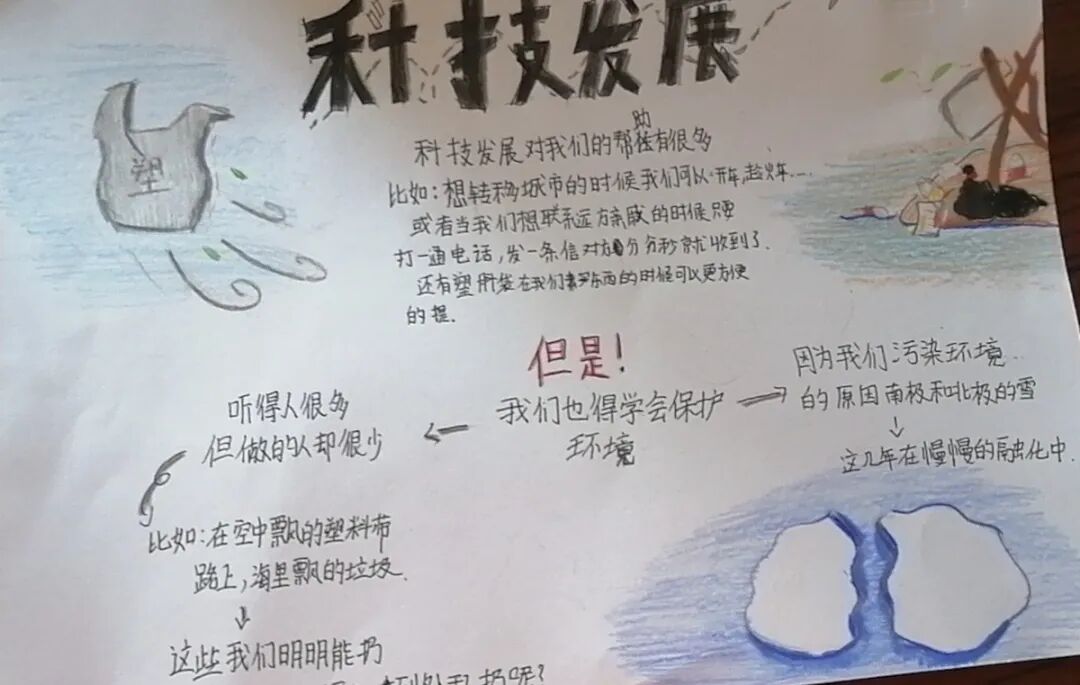 科技发展
塑
科技发展对我们的帮助有很多
比如：想转移城市的时候我们可以开车，趁火车....
或者当我们想联系远方亲戚的时候只要
打一通电话，发一条信对方分分秒就收到了.
还有塑料袋在我们买东西的时候可以更方便
的提.
但是！
我们也得学会保护
环境
因为我们污染环境..
的原因南极和北极的雪
这几年在慢慢的融化中.
听得人很多
但做的人却很少
比如：在空中飘的塑料布
路上，海里飘的垃圾.
这些我们明明能扔
扔呢？